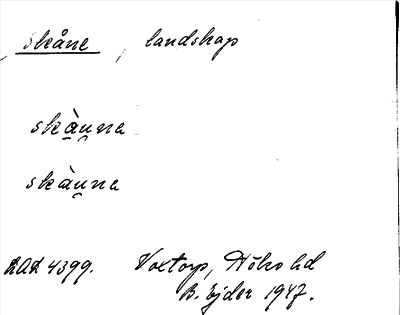 Skåne, landskap
skàu̯na
skàu̯na
DAL 4399. Voxtorp, Höks hd
B. Ejder 1947.